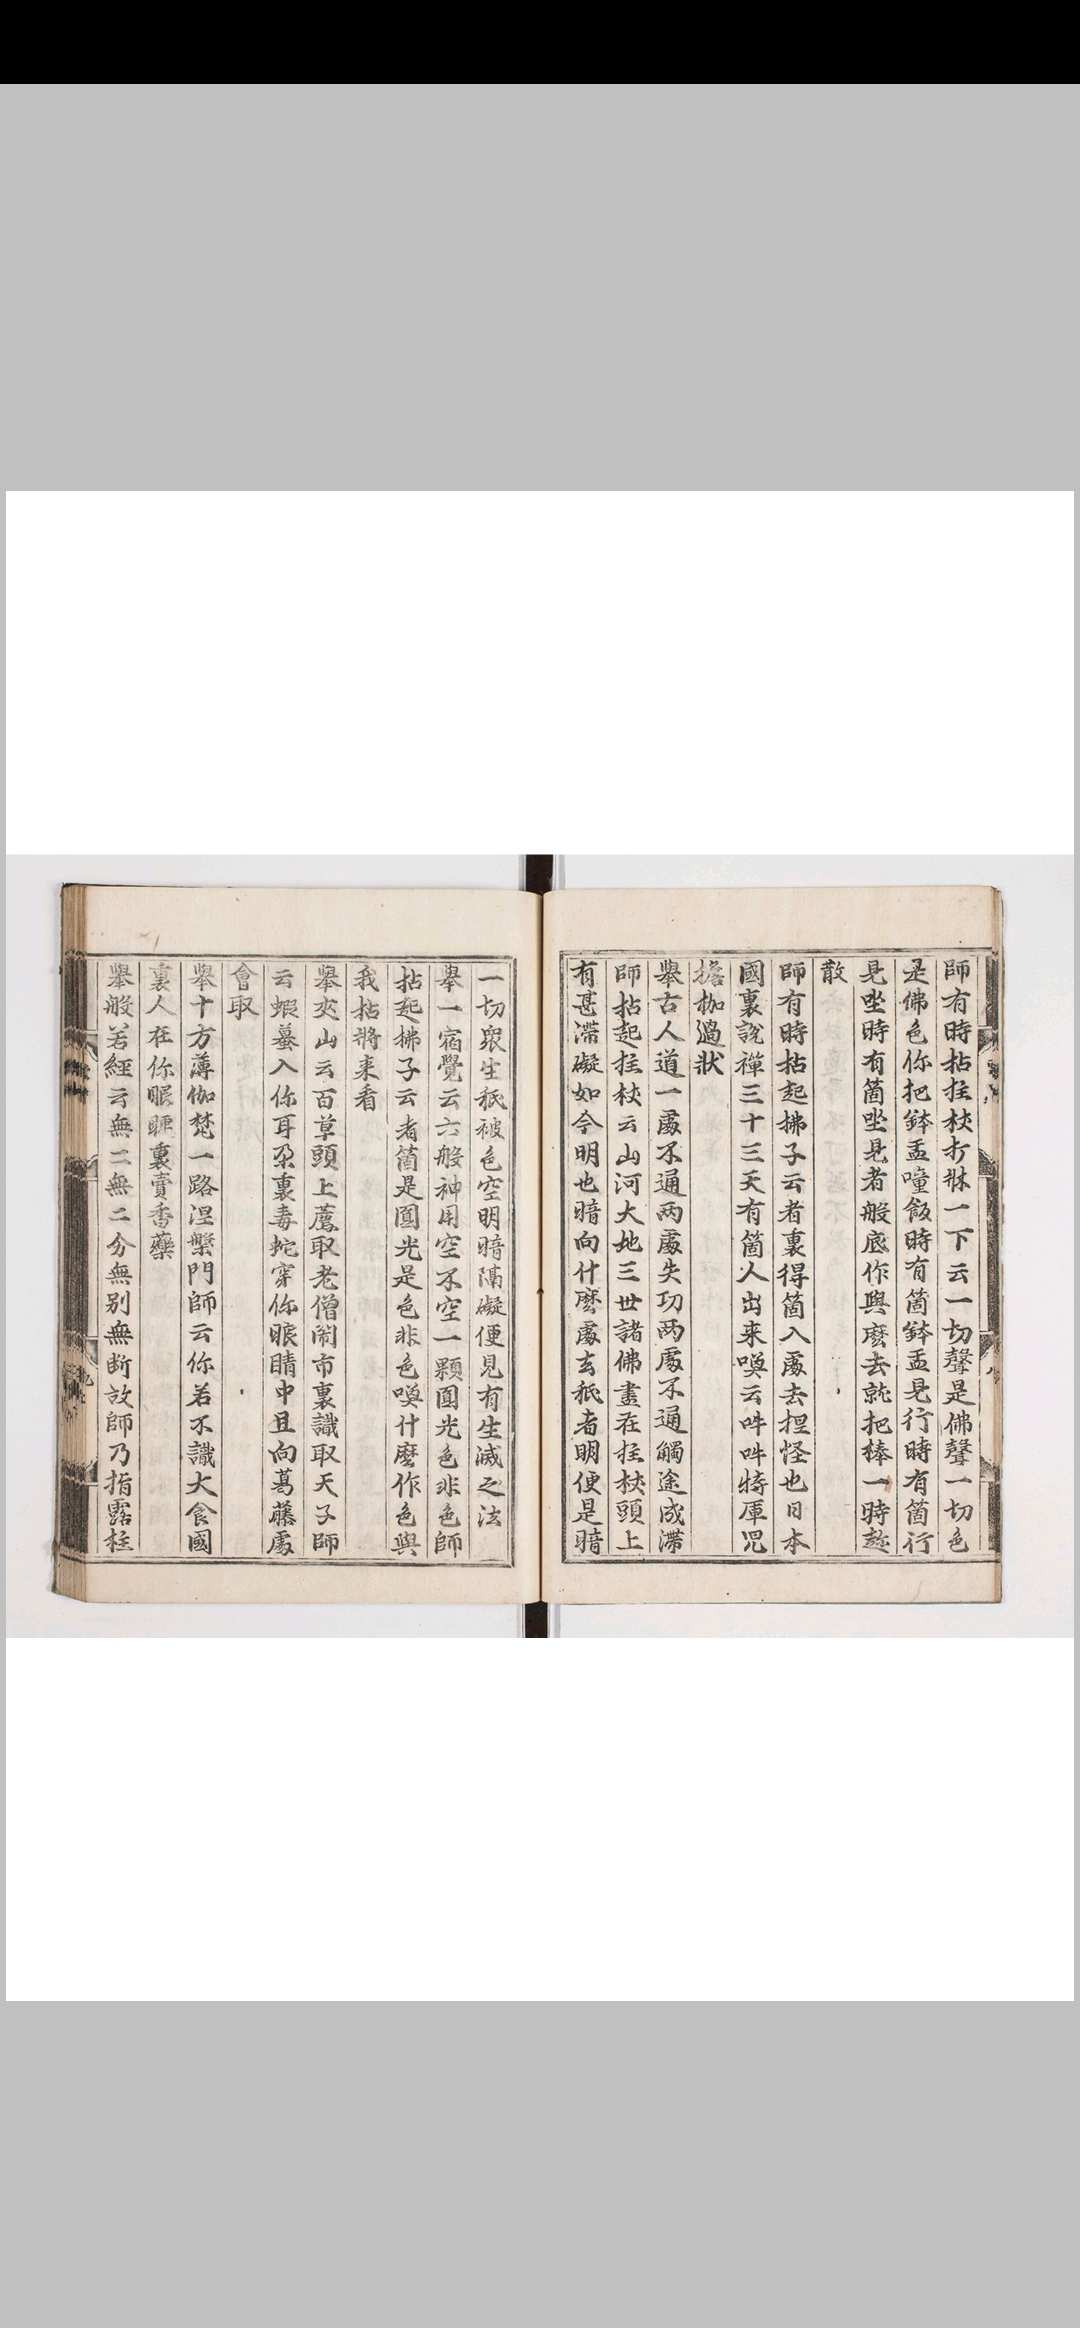 師有時拈拄杖打牀一下云一切聲是佛聲一切色
是佛色你把鉢盂噇飯時有箇鉢盂見行時有箇行
見坐時有箇坐見者般底作與麽去就把棒一時趂
散
師有時拈起拂子云者裏得箇入處去捏怪也日本
國裏說禪三十三天有箇人出來喚云吽吽特庫児
擔枷過狀
舉古人道一處不通兩處失功兩處不通觸途成滯
師拈起拄杖云山河大地三世諸佛盡在拄杖頭上
有甚滯礙如今明也暗向什麽處去秖者明便是暗
一切衆生秖被色空明暗隔礙便見有生滅之法
舉一宿覺云六般神用空不空一顆圓光色非色師
拈起拂子云者箇是圓光是色非色喚什麽作色與
我拈將来看
舉夾山云百草頭上薦取老僧鬧市裏識取天子師
云蝦䗫入你耳朶裏毒蛇穿你眼睛中且向葛藤處
會取
舉十方薄伽梵一路涅槃門師云你若不識大食國
裏人在你眼睚裏賣香藥
舉般若經云無二無二分無别無断故師乃指露柱